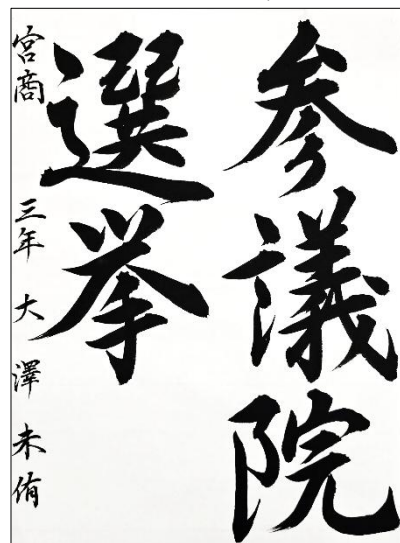 参議院
選挙
宮商 三年 大澤未侑